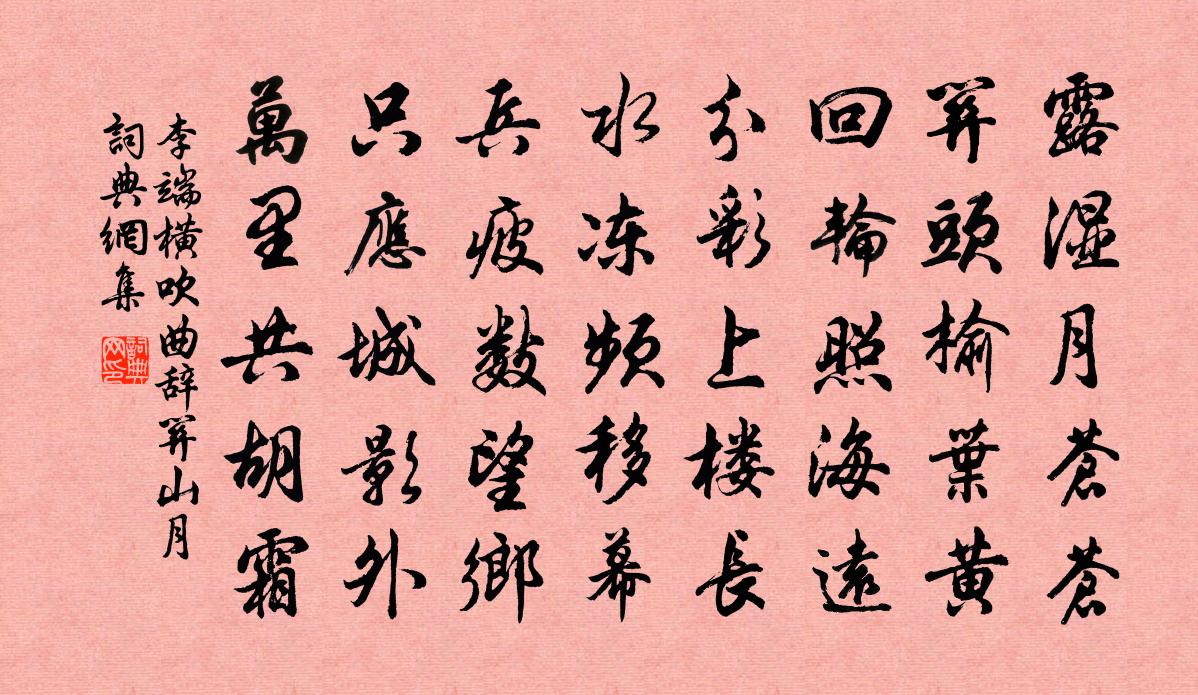 露濕月蒼蒼
関頭榆葉黃
回輪照海遠
分彩上楼長
水冻頻移幕
兵疲數望鄉
只應城影外
萬里共胡霜
李端橫吹曲辞関山月
詞典網集
詞典网印